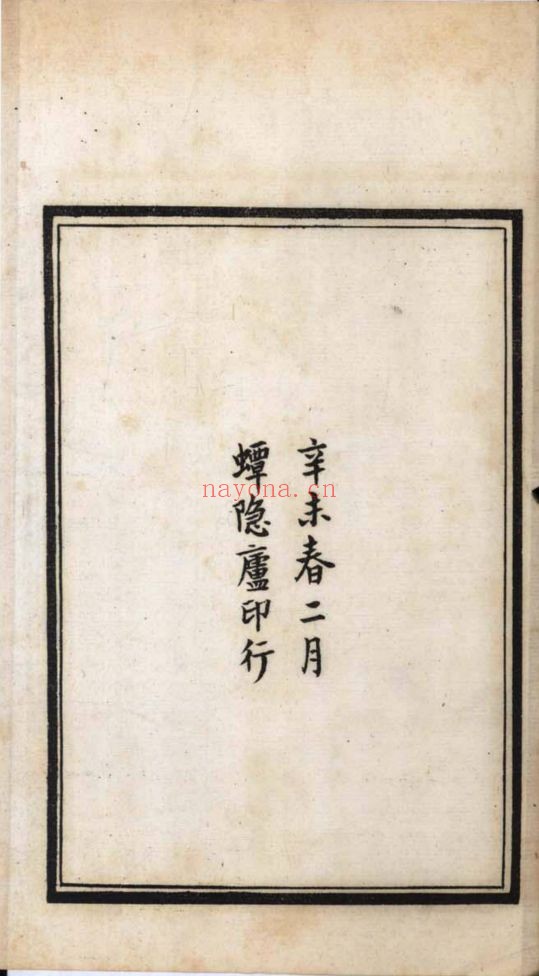 辛未春二月
蟫隐廬印行
nayona.cn